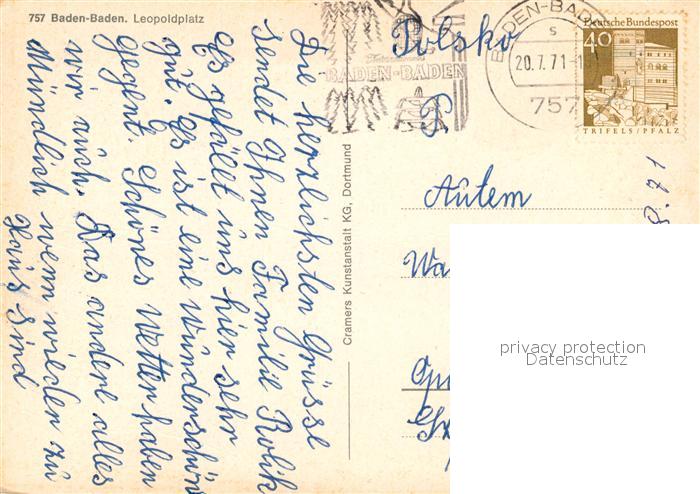 757 Baden-Baden. Leopoldplatz
Die herzlichsten Grüsse
sendet Ihnen Familie Rolik
es gefällt uns hier sehr
gut. Es ist eine wünderschöne
gegent. Schönes wetter haben
wir auch. Das andere alles
Mündlich wenn wieder zu
Haus sind
Cramers Kunstanstalt KG, Dortmund
BADEN-BADEN
BADEN-BAD
s
20.7.71-1
757
Deutsche Bundespost
40
TRIFELS/PFALZ
Polsko
P.
Aûtem
Wa
privacy protection
Datenschutz